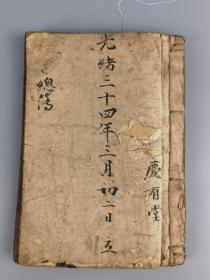 光緒二十四年三月初二日立
慶有堂
總簿